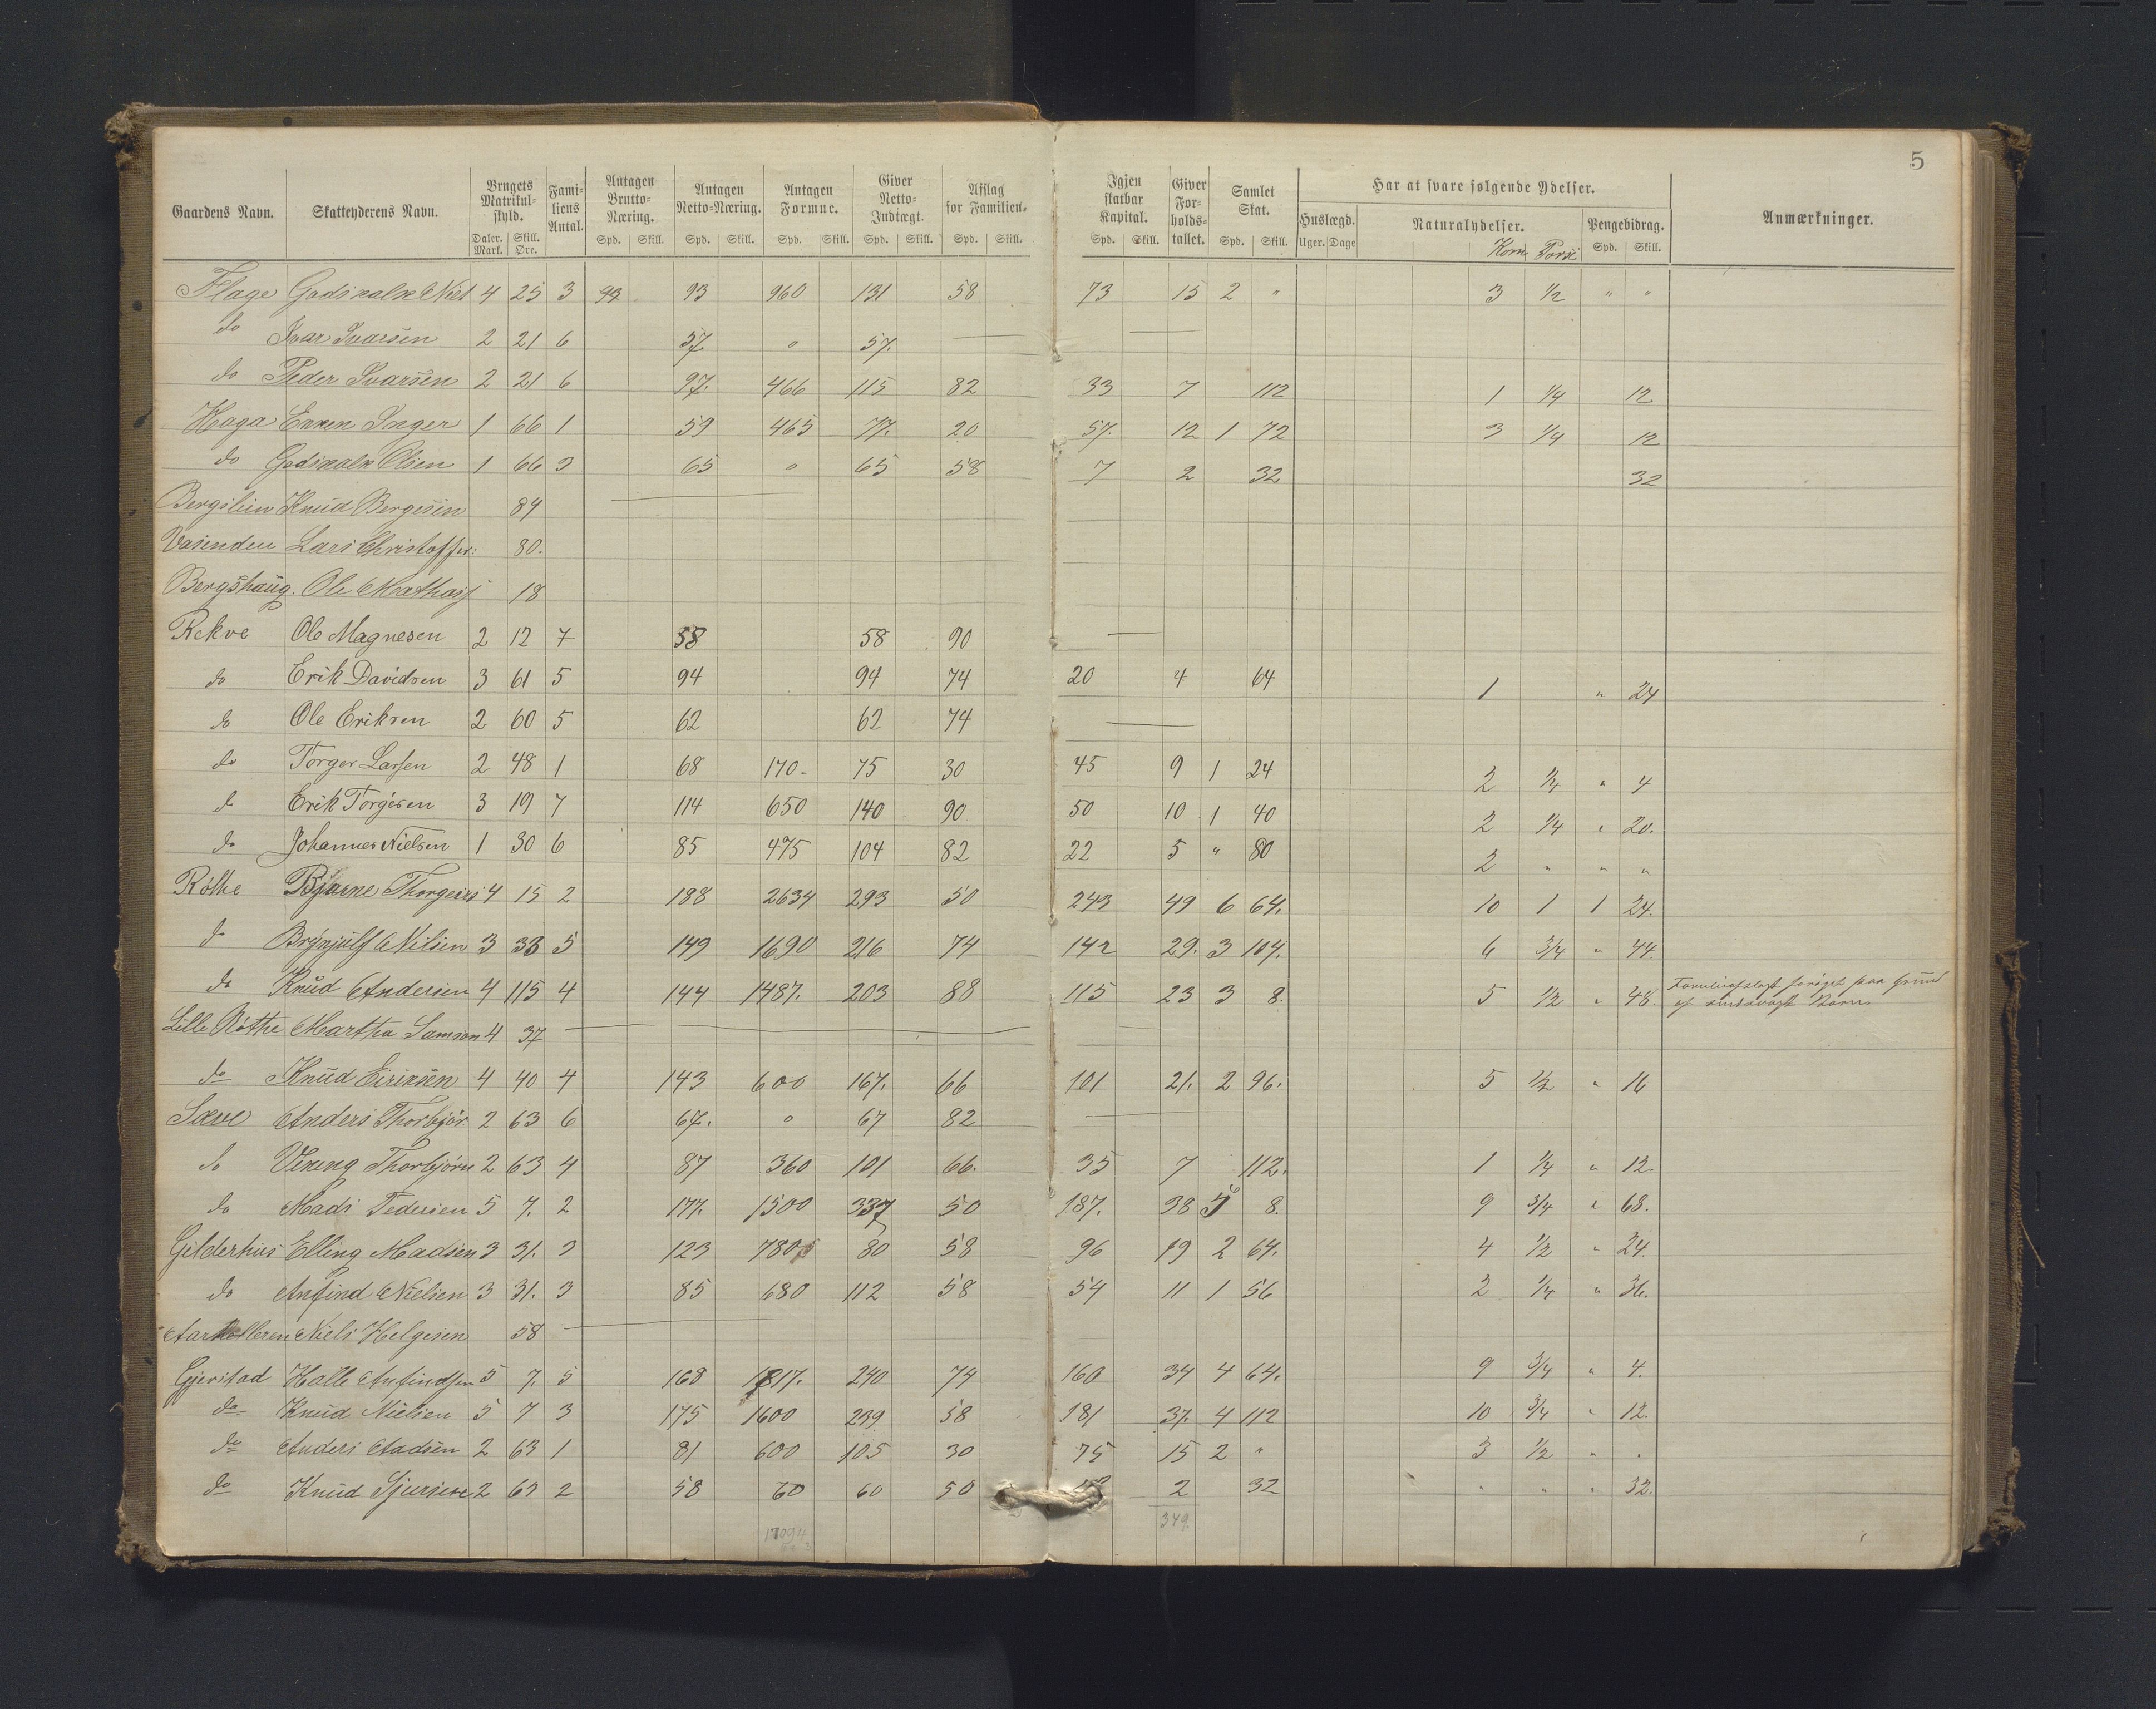 5
Gaardens Navn. Skatteyderens Navn. Brugets Matrikul-skyld. Daler. Mark. Skill. Øre. Fami-liens Antal. Antagen Brutto-Næring. Spd. Skill. Antagen Netto-Næring. Spd. Skill. Antagen Formue. Spd. Skill. Giver Netto-Indtægt. Spd. Skill. Afslag for Familien. Spd. Skill. Igjen skatbar Kapital. Spd. Skill. Giver For-holds-tallet. Samlet Skat. Spd. Skill. Har at svare følgende Ydelser. Huslægd. Uger. Dage Naturalydelser. Korn Pengebidrag. Spd. Skill. Anmærkninger.
Flage Godskalk Niels 4 25 3 93 93 960 131 58 73 15 2 " 3 1/2 " "
do Ivar Ivarsen 2 21 6 57 0 57.
do Peder Ivarsen 2 21 6 97. 466 115 82 33 7 112 1 1/4 12
Haga Enken Inger 1 66 1 59 465 77. 20 57. 12 1 72 3 1/4 12
do Godskalk Olsen 1 66 3 65 0 65 58 7 2 32 32
Bergslien Knud Bergesen 84
Vasenden Lars Christoffer: 80.
Bergshaug. Ole Mathias 18
Rekve Ole Magnesen 2 12 7 58 58 90
do Erik Davidsen 3 61 5 94 94 74 20 4 64 1 " 24
do Ole Eriksen 2 60 5 62 62 74
do Torger Larsen 2 48 1 68 170- 75 30 45 9 1 24 2 1/4 " 4
do Erik Torgersen 3 19 7 114 650 140 90 50 10 1 40 2 1/4 " 20.
do Johannes Nielsen 1 30 6 85 475 104 82 22 5 " 80 2 " " "
Röthe Bjarne Thorgeirs 4 15 2 188 2634 293 50 243 49 6 64. 10 1 1 24.
do Brynjulf Nilsen 3 33 5 149 1690 216 74 142 29. 3 104. 6 3/4 " 44.
do Knud Andersen 4 115 4 144 1487. 203 88 115 23 3 8. 5 1/2 " 48. Familieafslaget forøget paa Grund
af sindssvagt Barn
Lille Röthe Martha Samson 4 37
do Knud Eiriksen 4 40 4 143 600 167. 66 101 21. 2 96. 5 1/2 " 16
Sæve Anders Thorbjör 2 63 6 67. 0 67 82
do Viking Thorbjörn 2 63 4 87 360 101 66. 35 7 112. 1 1/4 " 12
do Mads Pedersen 5 7. 2 177. 1500 337 50 187. 38 5 8. 9 3/4 " 68.
Gilderhus Elling Madsen 3 31. 3 123 780 80 58 96 19 2 64. 4 1/2 " 24.
do Anfind Nielsen 3 31. 3 85 680 112 58 54 11 1 56 2 1/4 " 36.
Niels Helgesen 58
Gjerstad Halle Anfindsen 5 7. 5 168 1817. 240 74 160 34 4 64. 9 3/4 " 4.
do Knud Nielsen 5 7 3 175 1600 239 58 181 37. 4 112 10 3/4 " 12.
do Anders Aadsen 2 63 1 81 600 105 30 75 15 2 " 3 1/2 " "
do Knud Sjursen 2 63 2 58 60 60 50 2 32 " " " 32.
17094 349.